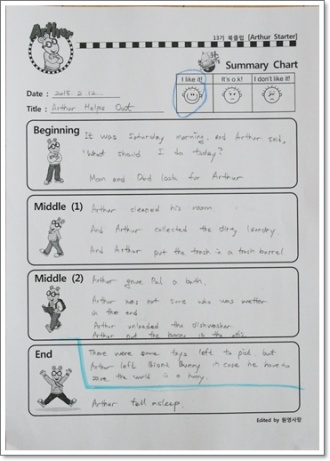 Arthur
13기 북클럽 [Arthur Starter]
Summary Chart
I like it! It's o.k! I don't like it!
Date : 2015. 2. 12.
Title : Arthur Helps Out
Beginning
It was Saturday morning, and Arthur said,
"What should I do today?
Mom and Dad look for Arthur
Middle (1)
Arthur cleaned his room.
And Arthur collected the dirty laundry
And Arthur put the trash in a trash barrel
Middle (2)
Arthur gave Pal a bath.
Arthur was not sure who was wetter
in the end.
Arthur unloaded the dishwasher.
Arthur put the
End
There were some toys left to pick, but
Arthur left Bionic Bunny in case he have to
save the world in a hurry.
Arthur fell asleep.
Edited by 원영사랑